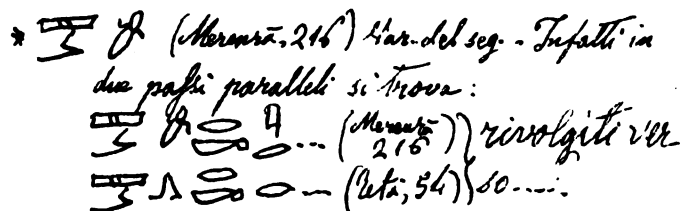 * (Merenrā, 216) Var. del seg. - Infatti in
due passi paralleli si trova:
... (Merenrā 216) } rivolgiti ver
... (Tetā, 54) } so.....